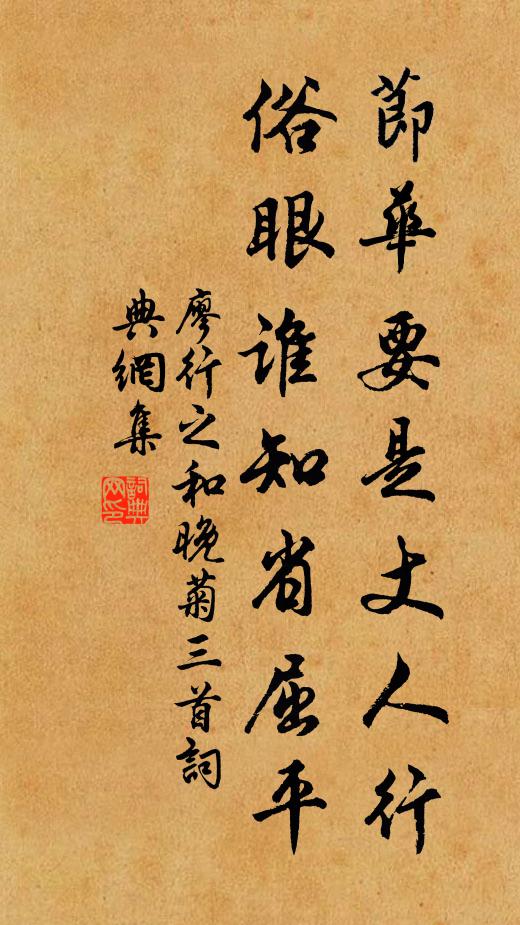 莭華要是丈人行
俗眼誰知省屈平
廖行之和晚菊三首詞
典網集
詞典網印